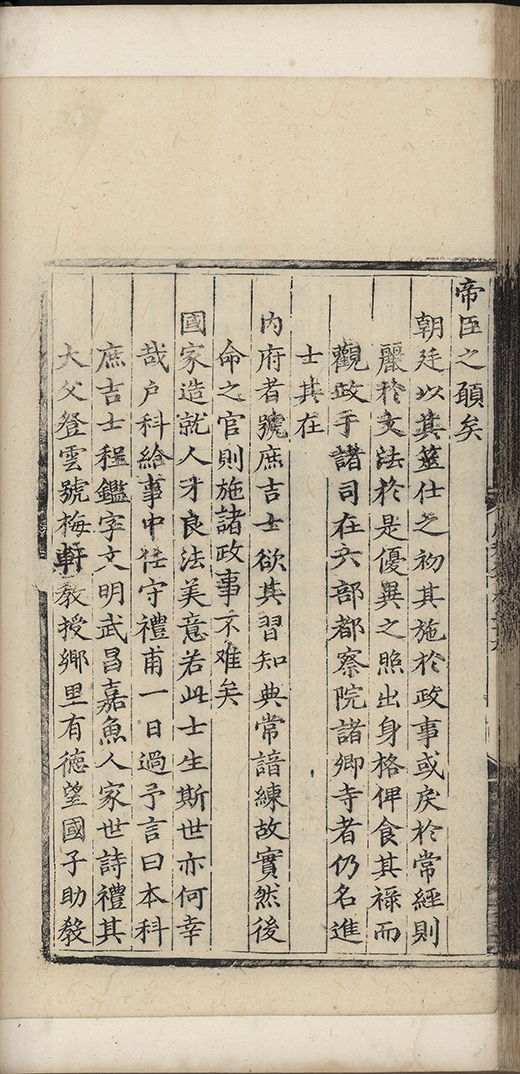 帝臣之頋矣
朝廷以其筮仕之初其施於政事或戾於常經則
麗於文法於是優異之照出身格俾食其祿而
觀政于諸司在六部都察院諸卿寺者仍名進
士其在
內府者號庶吉士欲其習知典常諳練故實然後
命之官則施諸政事不难矣
國家造就人才良法美意若此士生斯世亦何幸
哉户科給事中任守禮甫一日過予言曰本科
庶吉士程鑑字文明武昌嘉魚人家世詩禮其
大父登雲號梅軒敎授鄉里有德望國子助敎